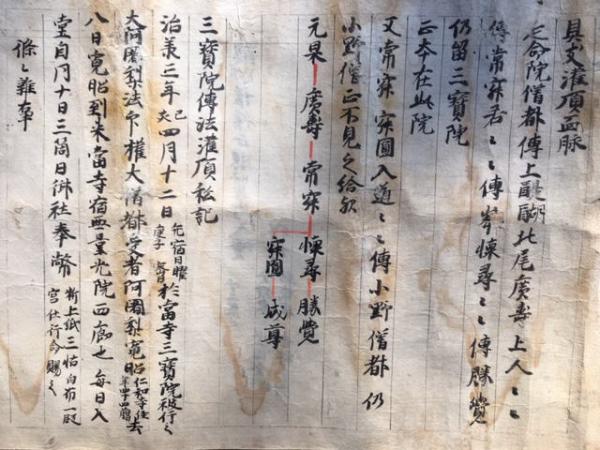 具支灌頂血脈
命院僧都傳上醍醐北尾慶壽上人〻〻
傳常寂君〻〻傳峯懷尋〻〻傳勝覺
仍留三寶院
正本在此院
又常寂寂圓入道〻〻傳小野僧都仍
小野僧正不見之給歟
元杲 慶壽 常寂 懷尋 勝覺
寂圓 成尊
三寶院傳法灌頂私記
治承三年己亥四月十二日庚子 宿日曜 於當寺三寶院被行之
大阿闍梨法印權大僧都 受者阿闍梨寬昭仁和寺住 年四十四
八日寬昭到來當寺宿無量光院四廊也每日入
堂自同十日三箇日拂社奉幣 新上紙三帖白布一段 宮仕行命賜之
條〻雜事